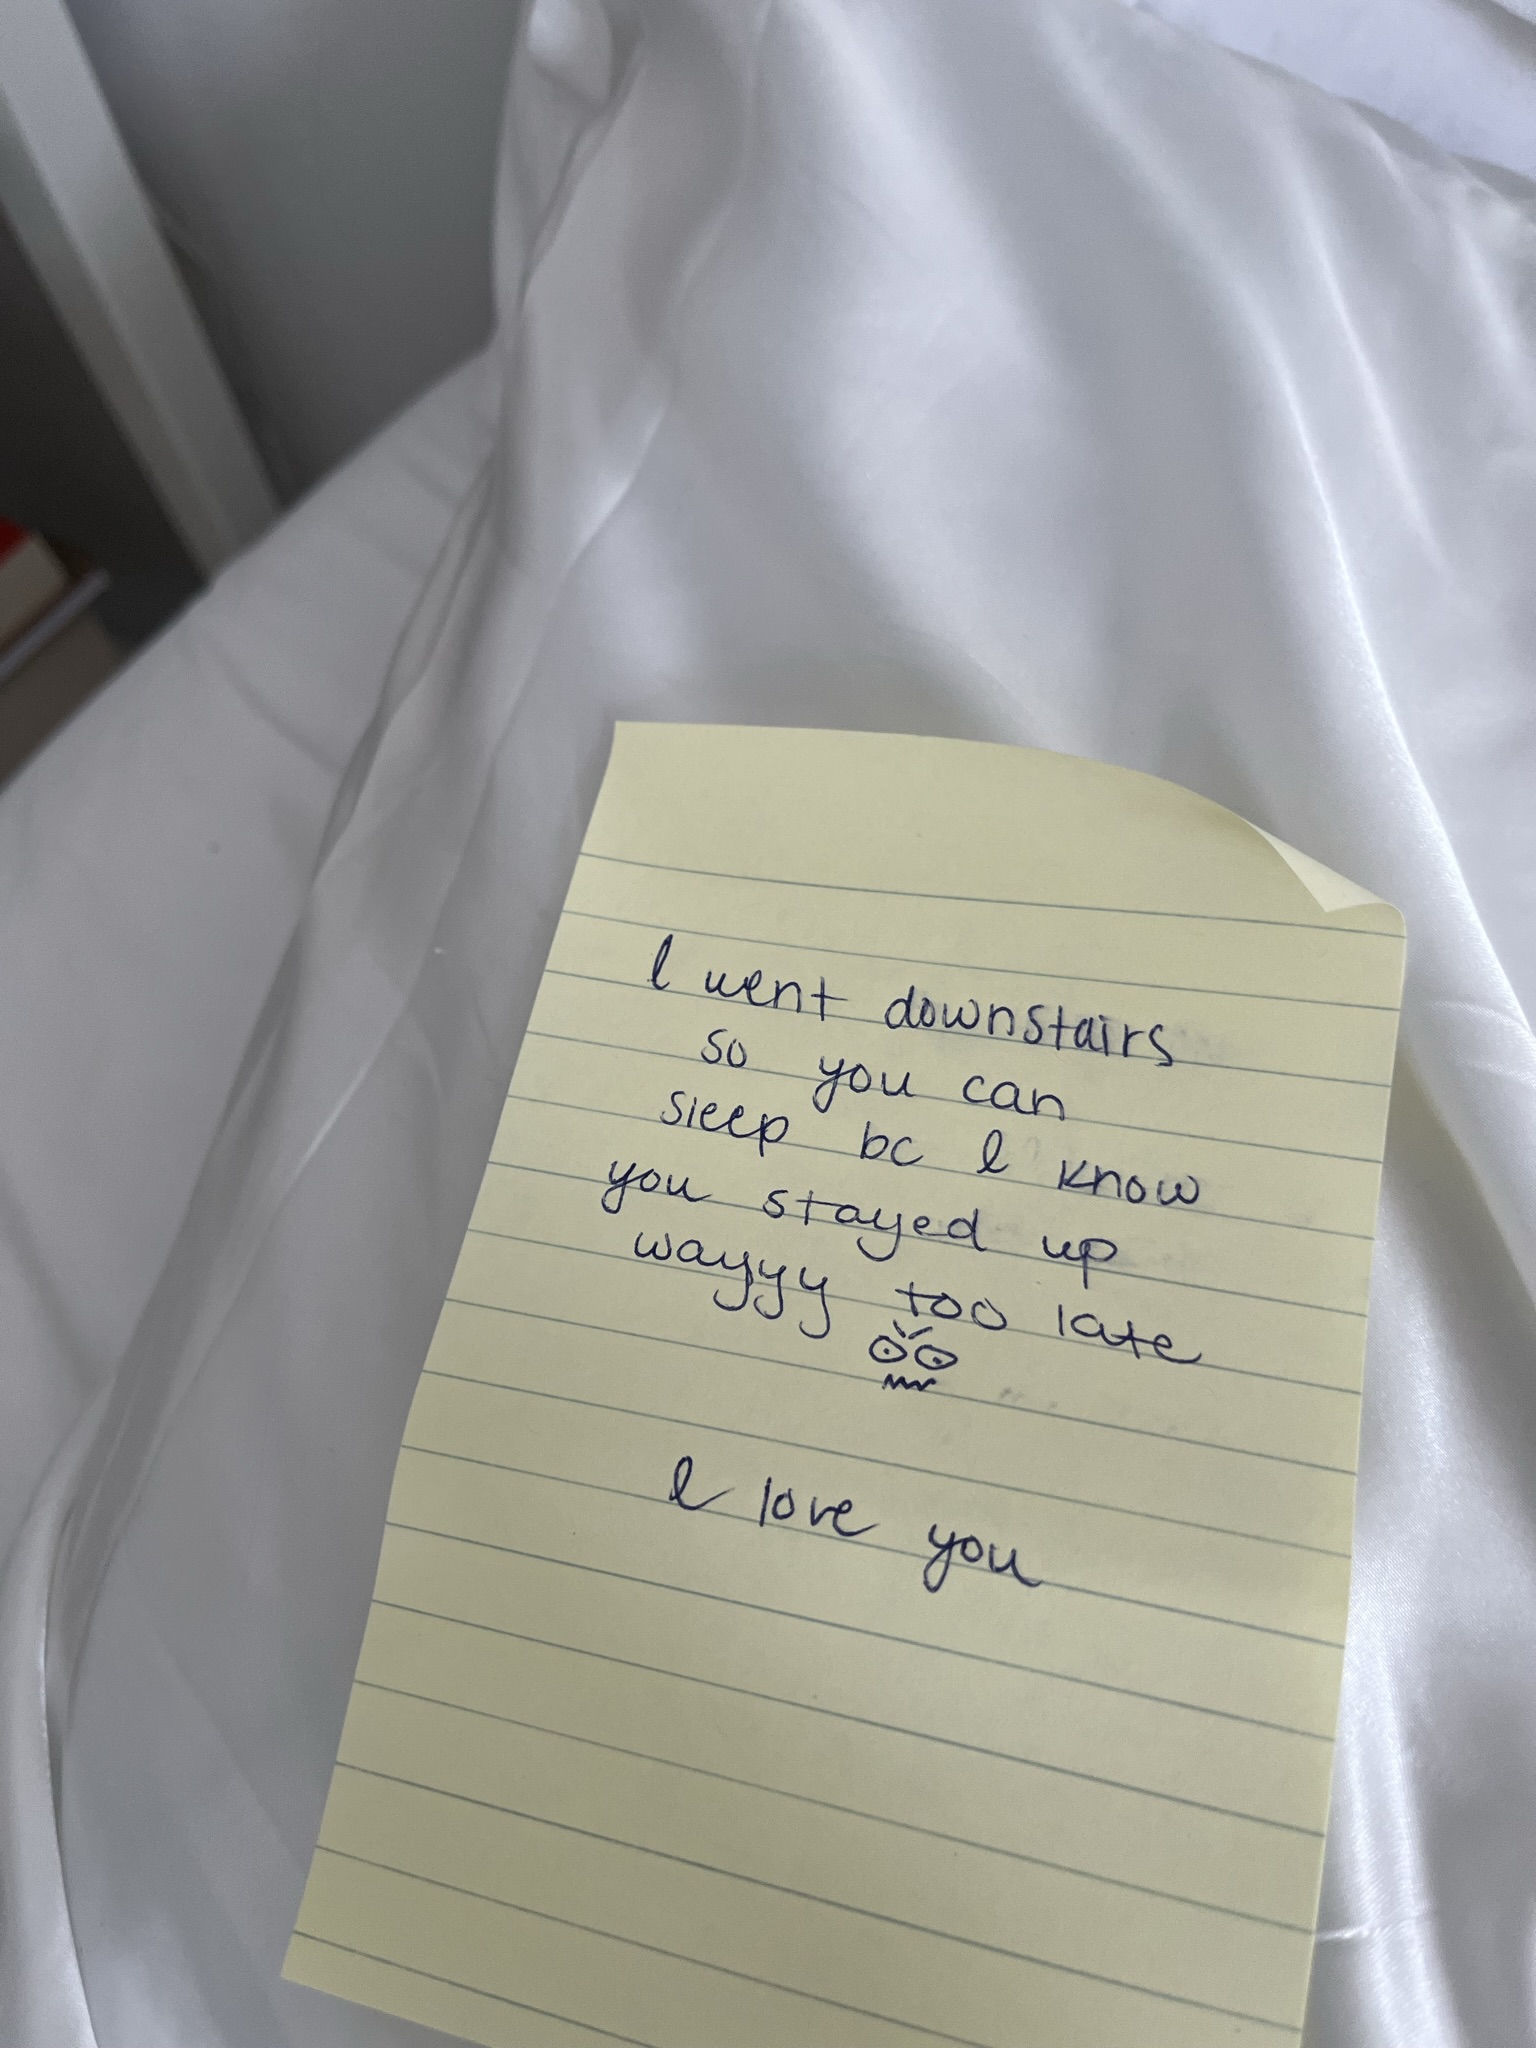 I went downstairs
so you can
sleep bc I know
you stayed up
wayyy too late
I love you